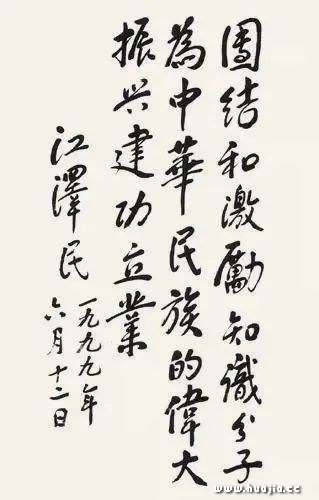 團结和激勵知識分子
為中華民族的偉大
振兴建功立業
江澤民
一九九九年
六月十二日
www.huajia.cc